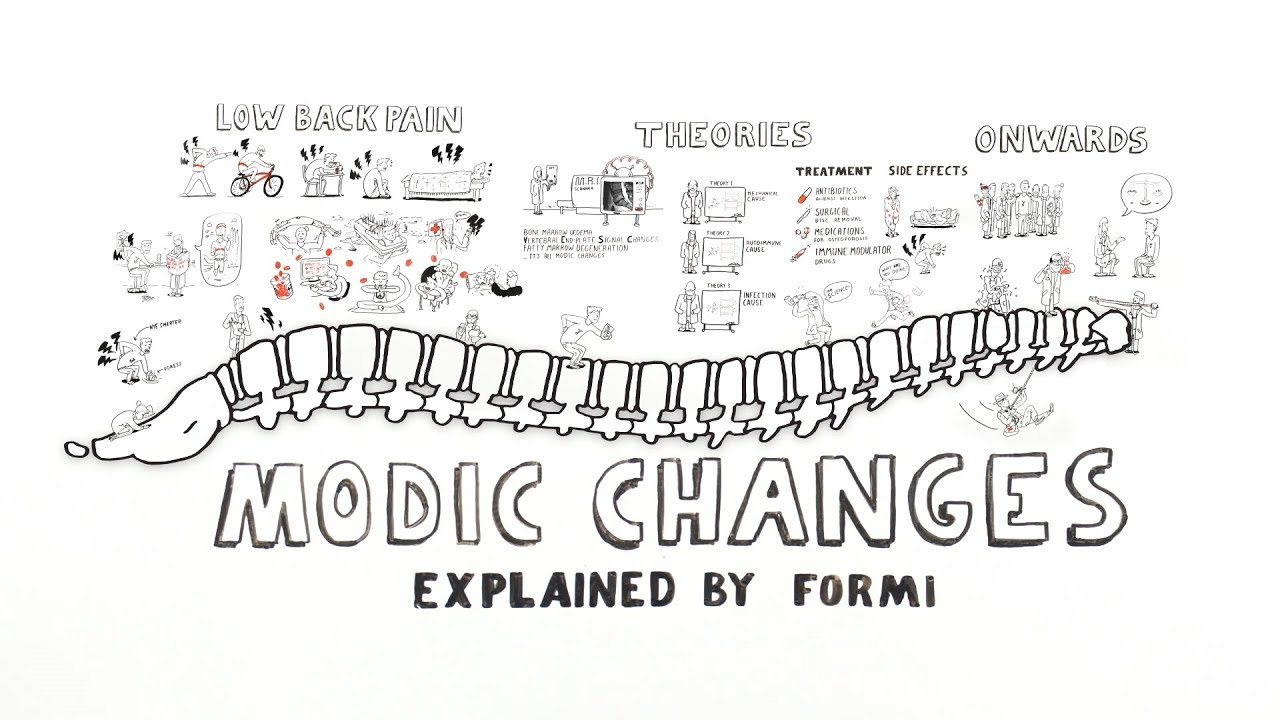 LOW BACK PAIN
THEORIES
ONWARDS
TREATMENT
SIDE EFFECTS
ANTIBIOTICS
AGAINST INFECTION
SURGICAL
DISC REMOVAL
MEDICATIONS
FOR OSTEOPOROSIS
IMMUNE MODULATOR
DRUGS
THEORY 1
MECHANICAL
CAUSE
THEORY 2
AUTOIMMUNE
CAUSE
THEORY 3
INFECTION
CAUSE
M.R.I
SCANNER
BONE MARROW OEDEMA
VERTEBRAL END-PLATE SIGNAL CHANGES
FATTY MARROW DEGENERATION
...IT'S ALL MODIC CHANGES
MODIC CHANGES
EXPLAINED BY FORMI